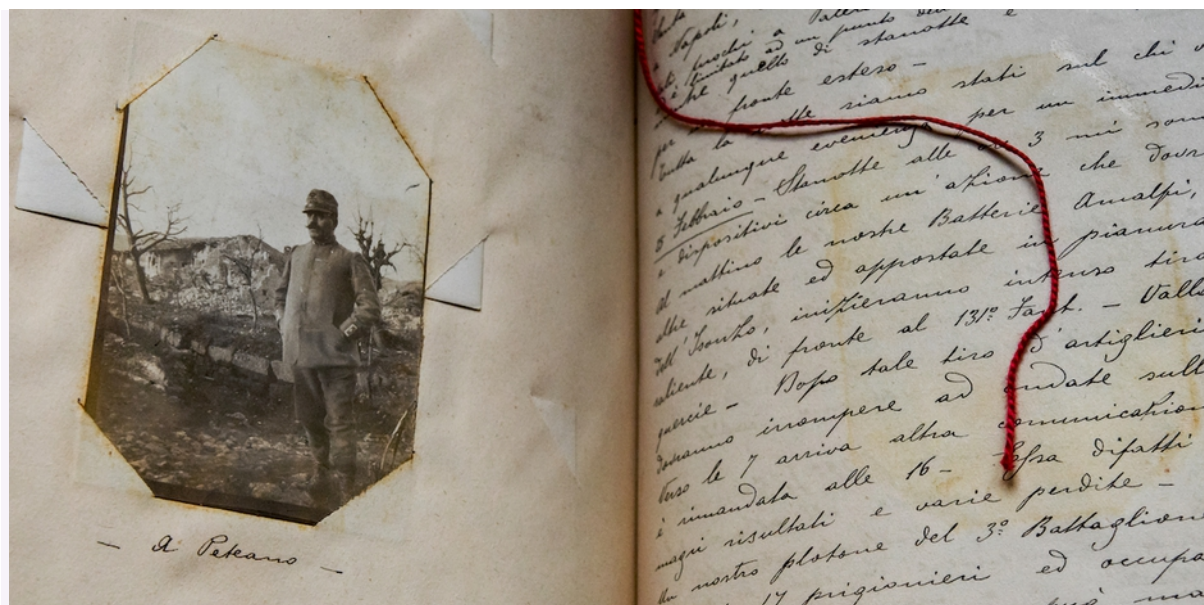 — A Peteano —
Napoli, a
pochi a
è limitato ad un punto
quello di stanotte è
per fronte esteso —
Tutta la siamo stati sul chi v
a qualunque evenienza per un immedi
5 Febbraio — Stanotte alle 3 mi
dispositivi circa un'azione che dovr
al mattino le nostre Batterie Amalfi,
altre situate ed appostate in pianura
dell'Isonzo, inizieranno intenso tiro
saliente, di fronte al 131º Fant. — Vall
quercie — Dopo tale tiro d'artiglieri
dovranno irrompere ad ondate sull
Verso le 7 arriva altra comunicazion
è rimandata alle 16 — Essa difatti
magri risultati e varie perdite —
Un nostro plotone del 3º Battaglion
17 prigionieri ed occupa